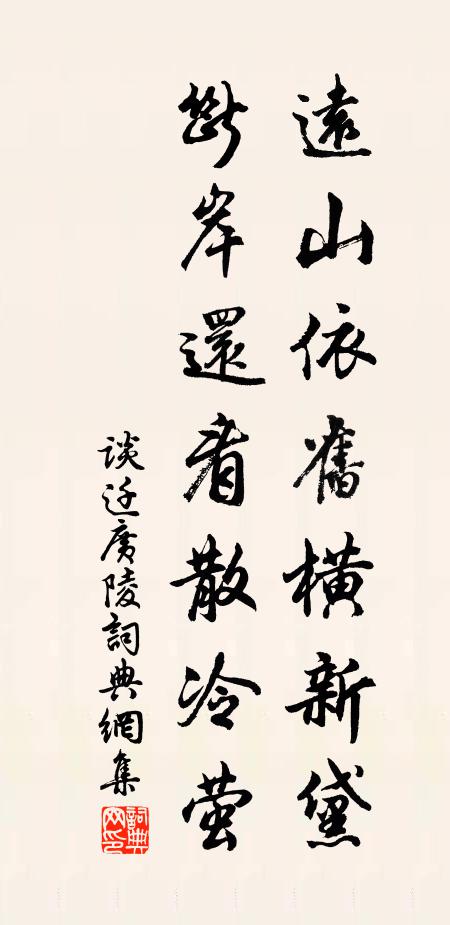 遠山依舊橫新黛
斷岸還看散冷螢
談迁廣陵詞典網集
詞典网印